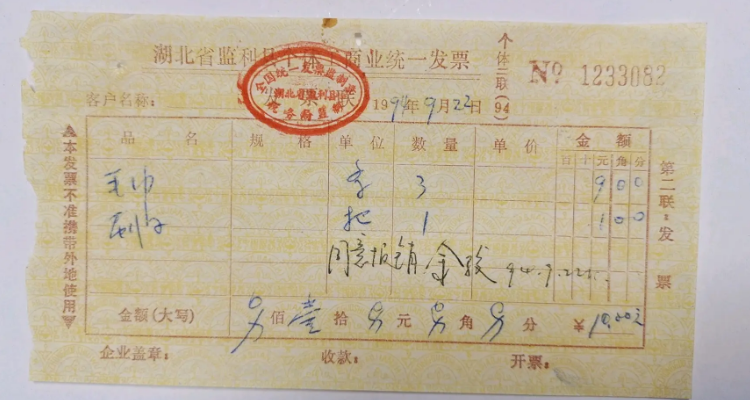 湖北省监利县个体工商业统一发票
个体二联(94)
No 1233082
全国统一发票监制章
湖北省监利县
税务局监制
发票联
客户名称：
1994年9月22日
品名 规格 单位 数量 单价 金额
百十元角分
毛巾 条 3 9 0 0
刷子 把 1 1 0 0
同意报销 金 94.9.22
金额(大写) 另佰壹拾另元另角另分 ¥10.00元
企业盖章： 收款： 开票：
▲本发票不准携带外地使用▼
第二联：发票